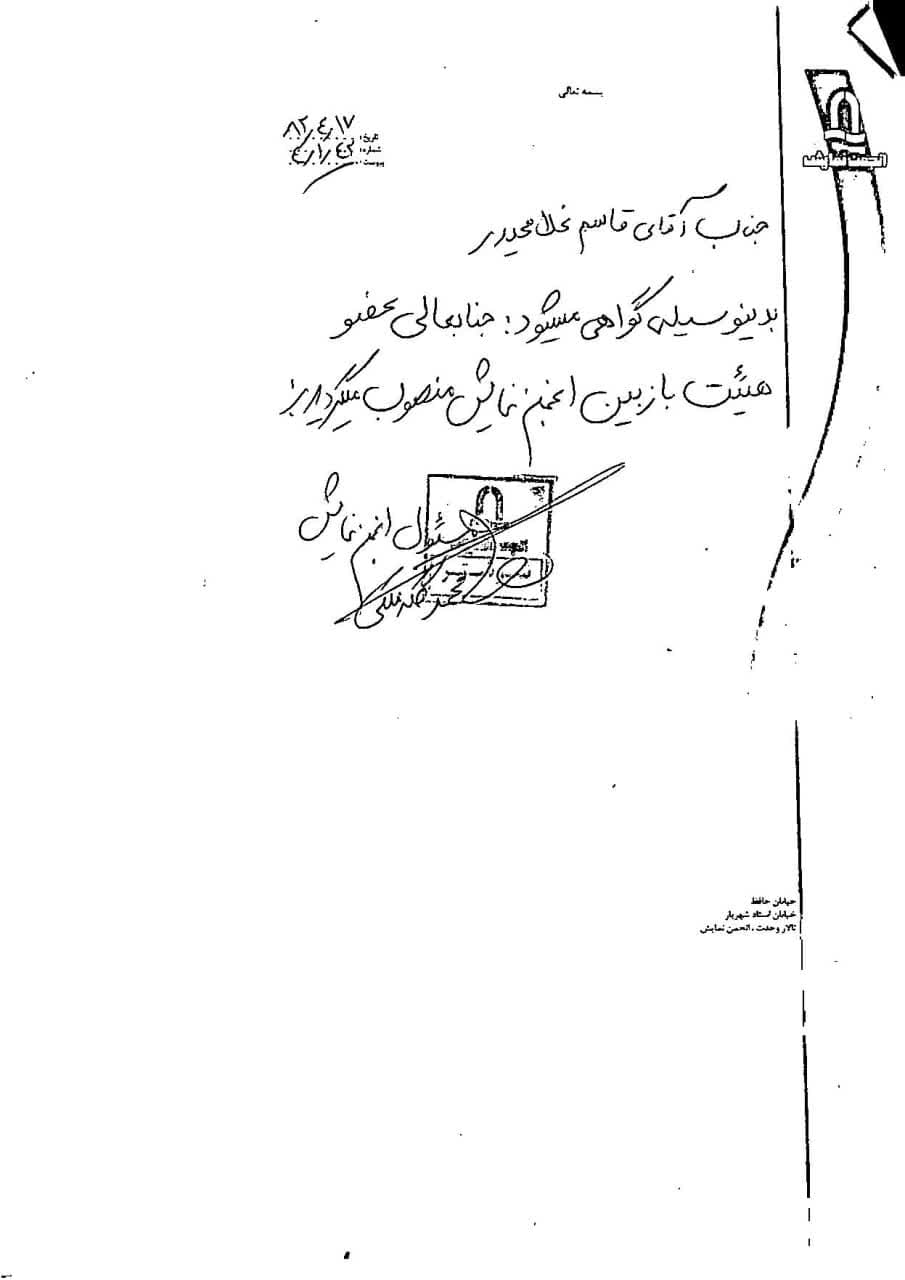 بسمه تعالی
تاریخ: ۸۲/۴/۱۷
شماره:
پیوست:
جناب آقای قاسم غلامحیدری
بدینوسیله گواهی میشود: جنابعالی عضو
هیئت بازبین انجمن نمایش منصوب میگردید
مسئول انجمن نمایش
خیابان حافظ
خیابان استاد شهریار
تالار وحدت ، انجمن نمایش